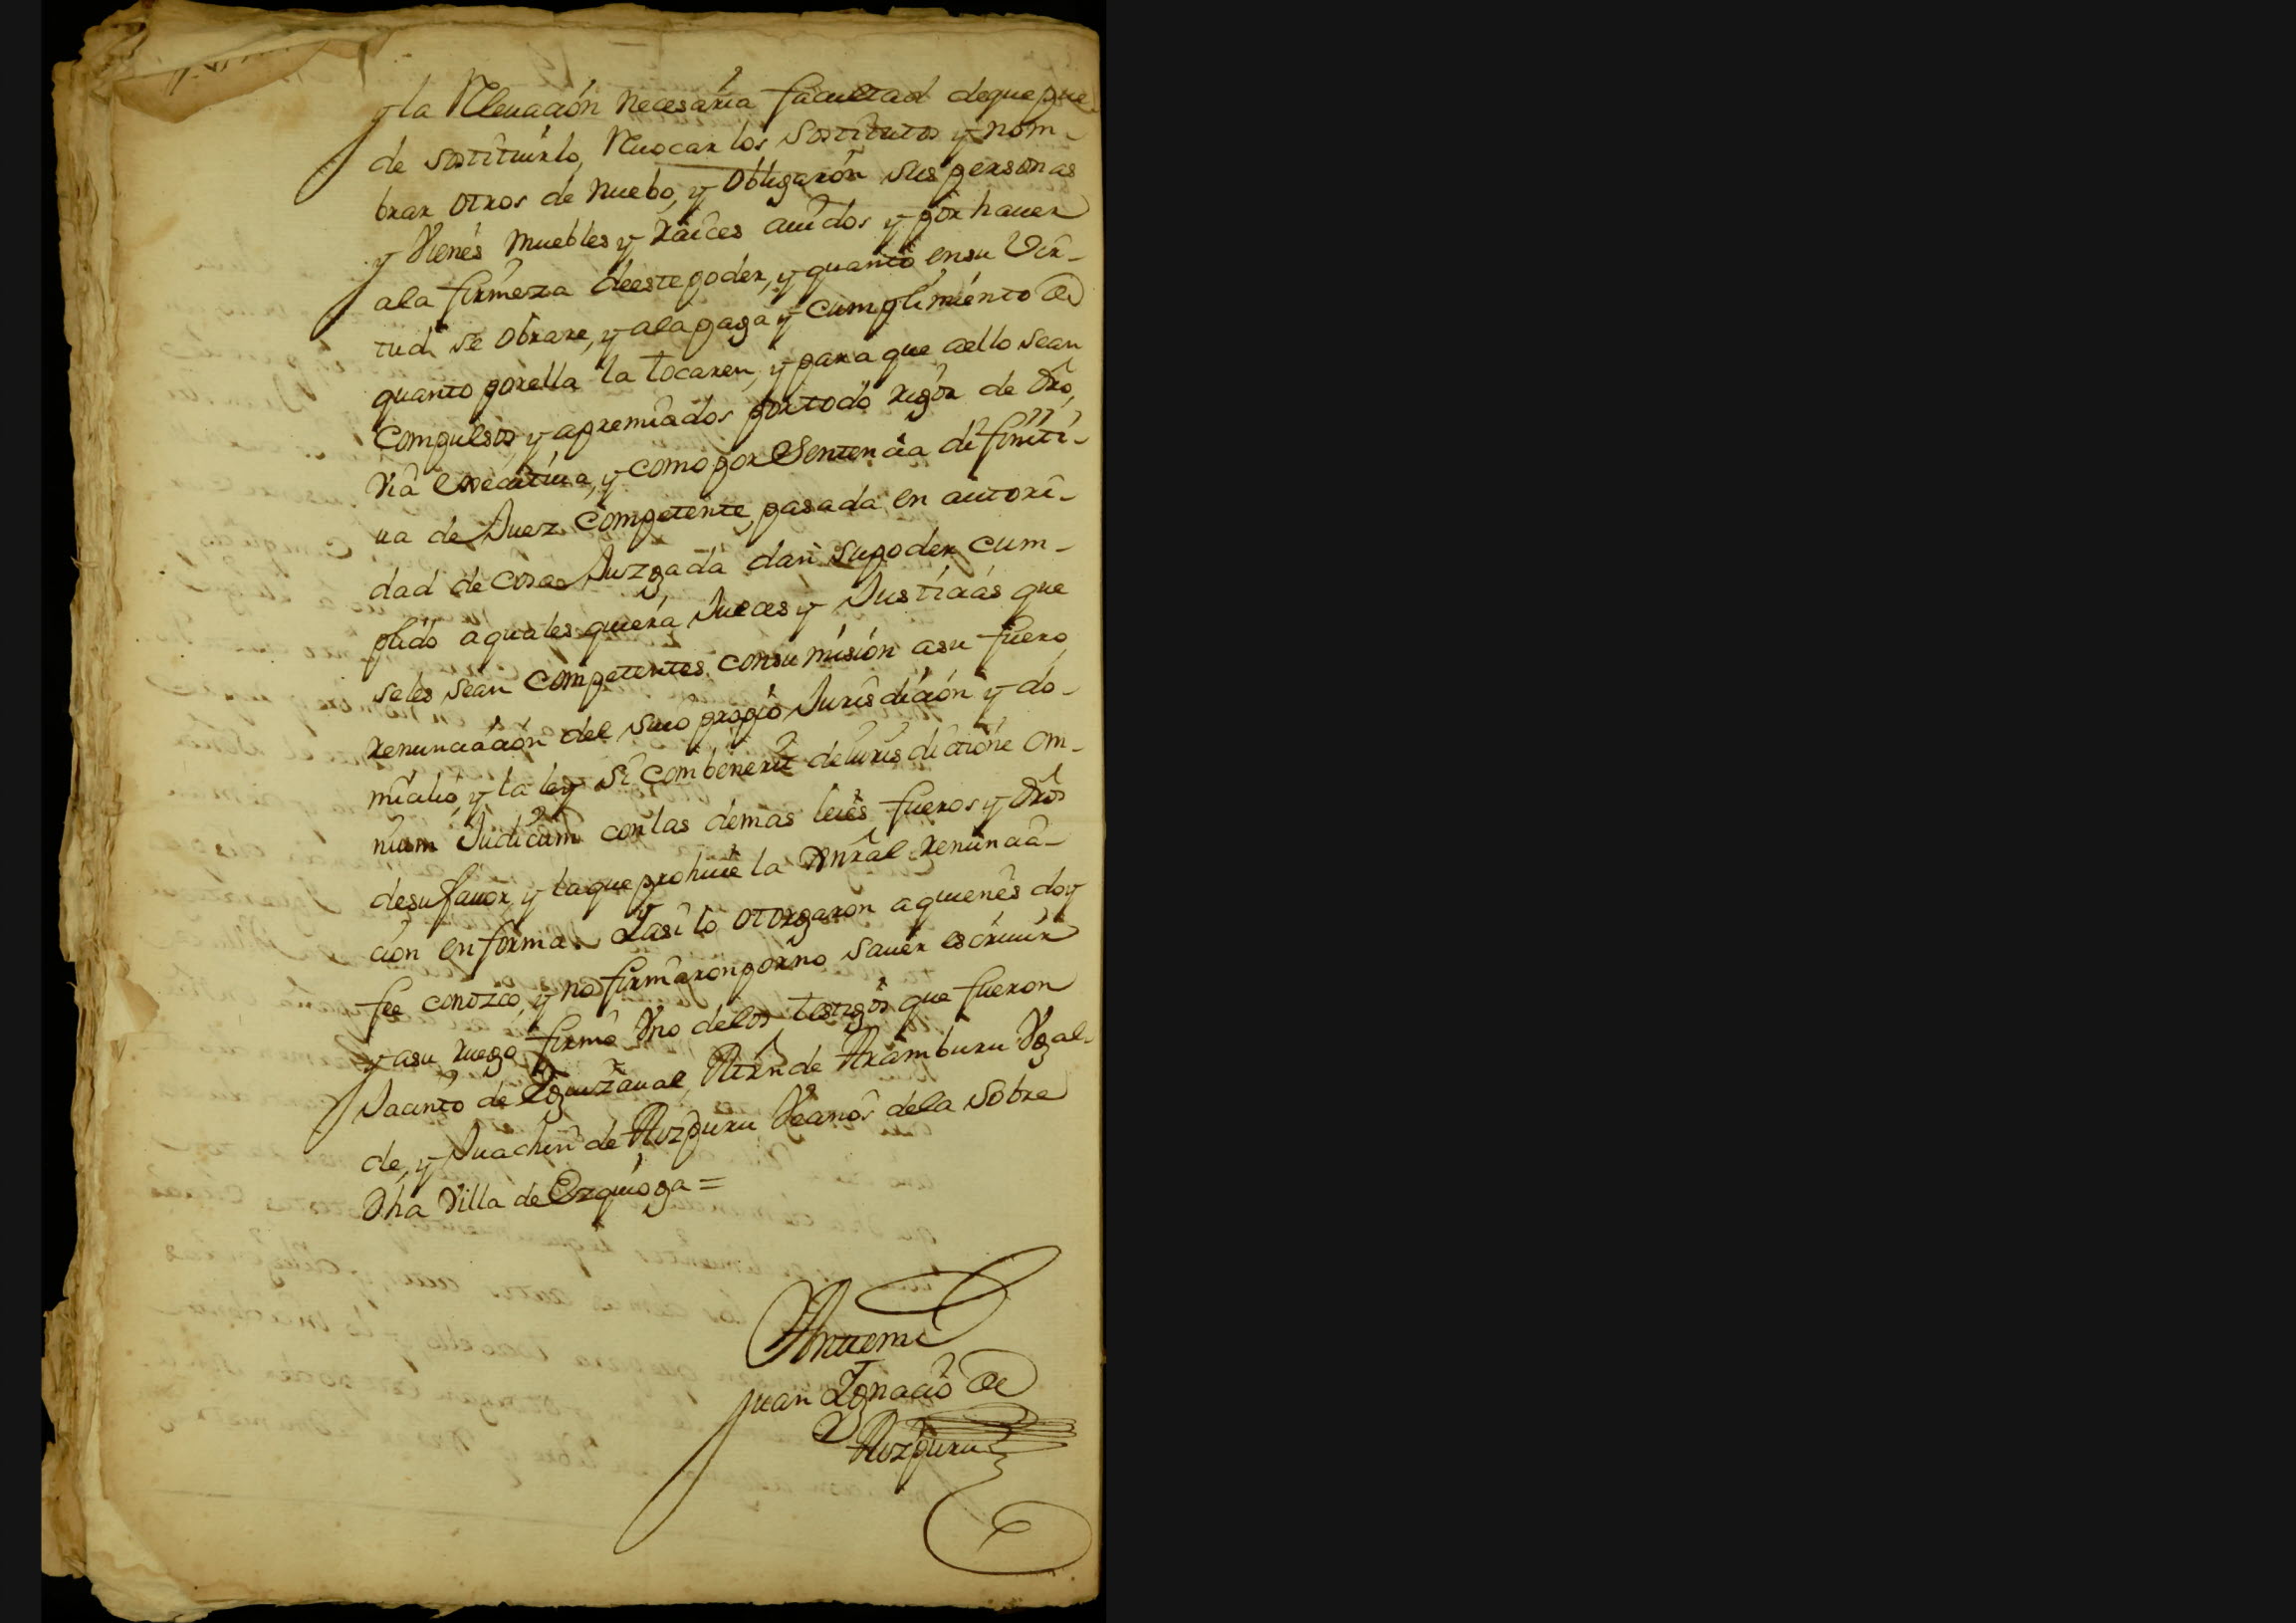 y la Releuación necesaria facultad deque pue
de sostituirlo, Reuocar los sostitutos y nom-
brar otros de nuebo, y obligarón sus personas
y Vienes muebles y raíces auidos y por hauer
ala firmeza deeste poder, y quanto ensu Vir-
tud se obrare, y ala paga y cumplimiento de
quanto porella la tocaren, y para que aello sean
Compulsos, y apremiados por todo rigór de dro,
Via executiua, y como por Sentencia difiniti-
ua de Juez Competente, pasada en autori-
dad de cosa Juzgada dan supoder cum-
plido a quales quiera Jueces y Justicias que
seles sean Competentes consu misión asu fuero,
renunciación del suio propio Jurisdición y do-
micilio, y la ley si combenerit de iuris dictione om-
nium Judicum con las demas leies fueros y dros
desu fauor, y laque prohiue la Gnral renuncia-
ción en forma. Y asi lo otorgaron a quienes doy
fee conozco, y no firmaron por no sauer escriuir
y asu ruego firmó Vno delos testigos que fueron
Jacinto de Eguzaual, Mrn de Aramburu Vgal-
de, y Juachin de Aizpuru Vecinos dela sobre
dha Villa de Ezquioga =
Antemi
Juan Ignacio de
Aizpuru